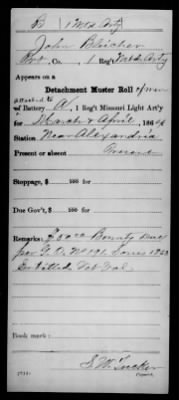 B | 1 | Mo. L. Arty
John Bleicher
Pvt., Co. , 1 Reg't Mo. L. Arty
Appears on a
Detachment Muster Roll of men
attached to
of Battery A, 1 Reg't Missouri Light Art'y
for March & April, 1864
Station Near Alexandria
Present or absent Present
Stoppage, $ 100 for
Due Gov't, $ 100 for
Remarks: $ Bounty due
per G. O. No 191 Series 1863
Enlisted Vet Vol.
Book mark:
S. W. Tucker
Copyist.